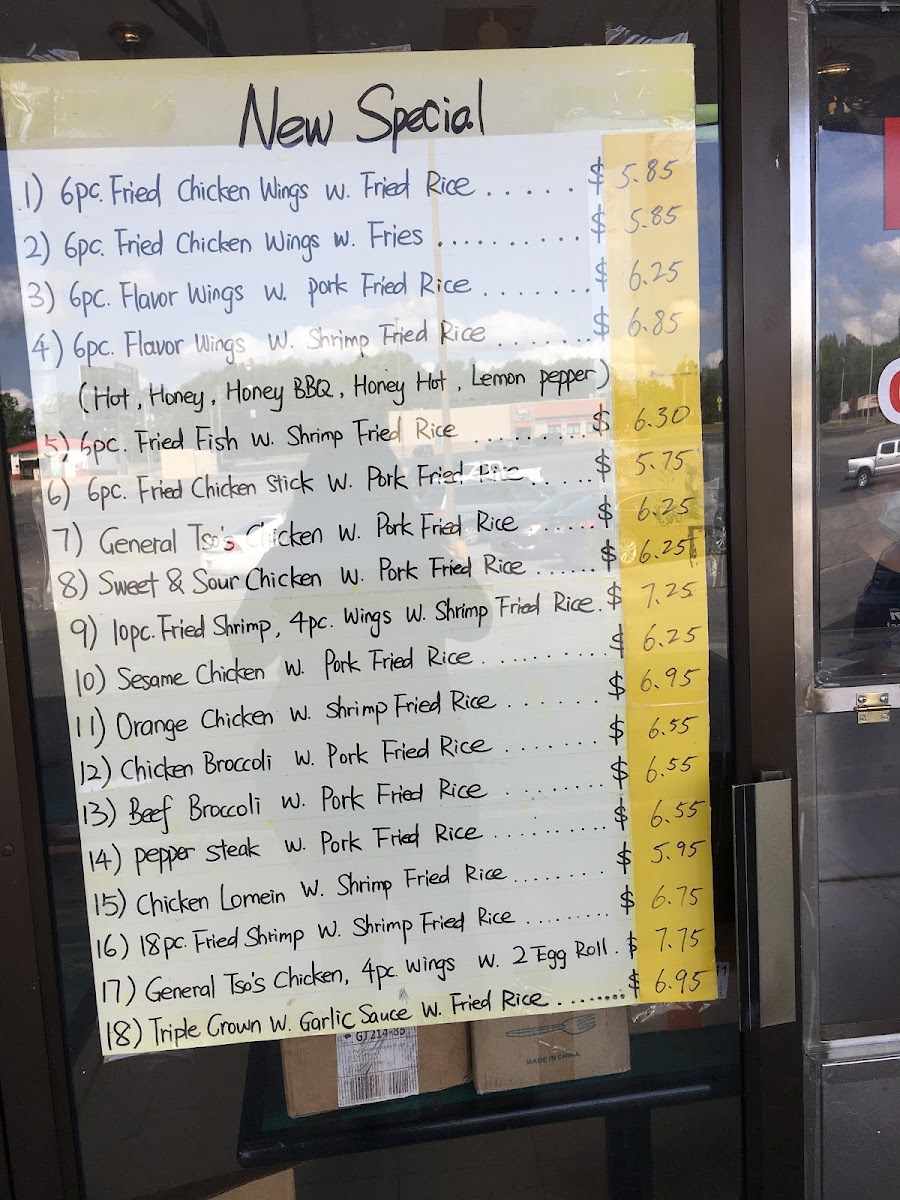 New Special
1) 6pc. Fried Chicken Wings w. Fried Rice ..... $ 5.85
2) 6pc. Fried Chicken Wings w. Fries .......... $ 5.85
3) 6pc. Flavor Wings w. pork Fried Rice ....... $ 6.25
4) 6pc. Flavor Wings w. Shrimp Fried Rice ....... $ 6.85
(Hot, Honey, Honey BBQ, Honey Hot, Lemon pepper)
5) 6pc. Fried Fish w. Shrimp Fried Rice ......... $ 6.30
6) 6pc. Fried Chicken Stick w. Pork Fried Rice ..... $ 5.75
7) General Tso's Chicken w. Pork Fried Rice ...... $ 6.25
8) Sweet & Sour Chicken w. Pork Fried Rice ...... $ 6.25
9) 10pc. Fried Shrimp, 4pc. Wings w. Shrimp Fried Rice. $ 7.25
10) Sesame Chicken w. Pork Fried Rice ......... $ 6.25
11) Orange Chicken w. Shrimp Fried Rice ....... $ 6.95
12) Chicken Broccoli w. Pork Fried Rice ........ $ 6.55
13) Beef Broccoli w. Pork Fried Rice ......... $ 6.55
14) pepper steak w. Pork Fried Rice .......... $ 6.55
15) Chicken Lomein w. Shrimp Fried Rice ........ $ 5.95
16) 18pc. Fried Shrimp w. Shrimp Fried Rice ........ $ 6.75
17) General Tso's Chicken, 4pc. wings w. 2 Egg Roll . $ 7.75
18) Triple Crown w. Garlic Sauce w. Fried Rice ........ $ 6.95
MADE IN CHINA